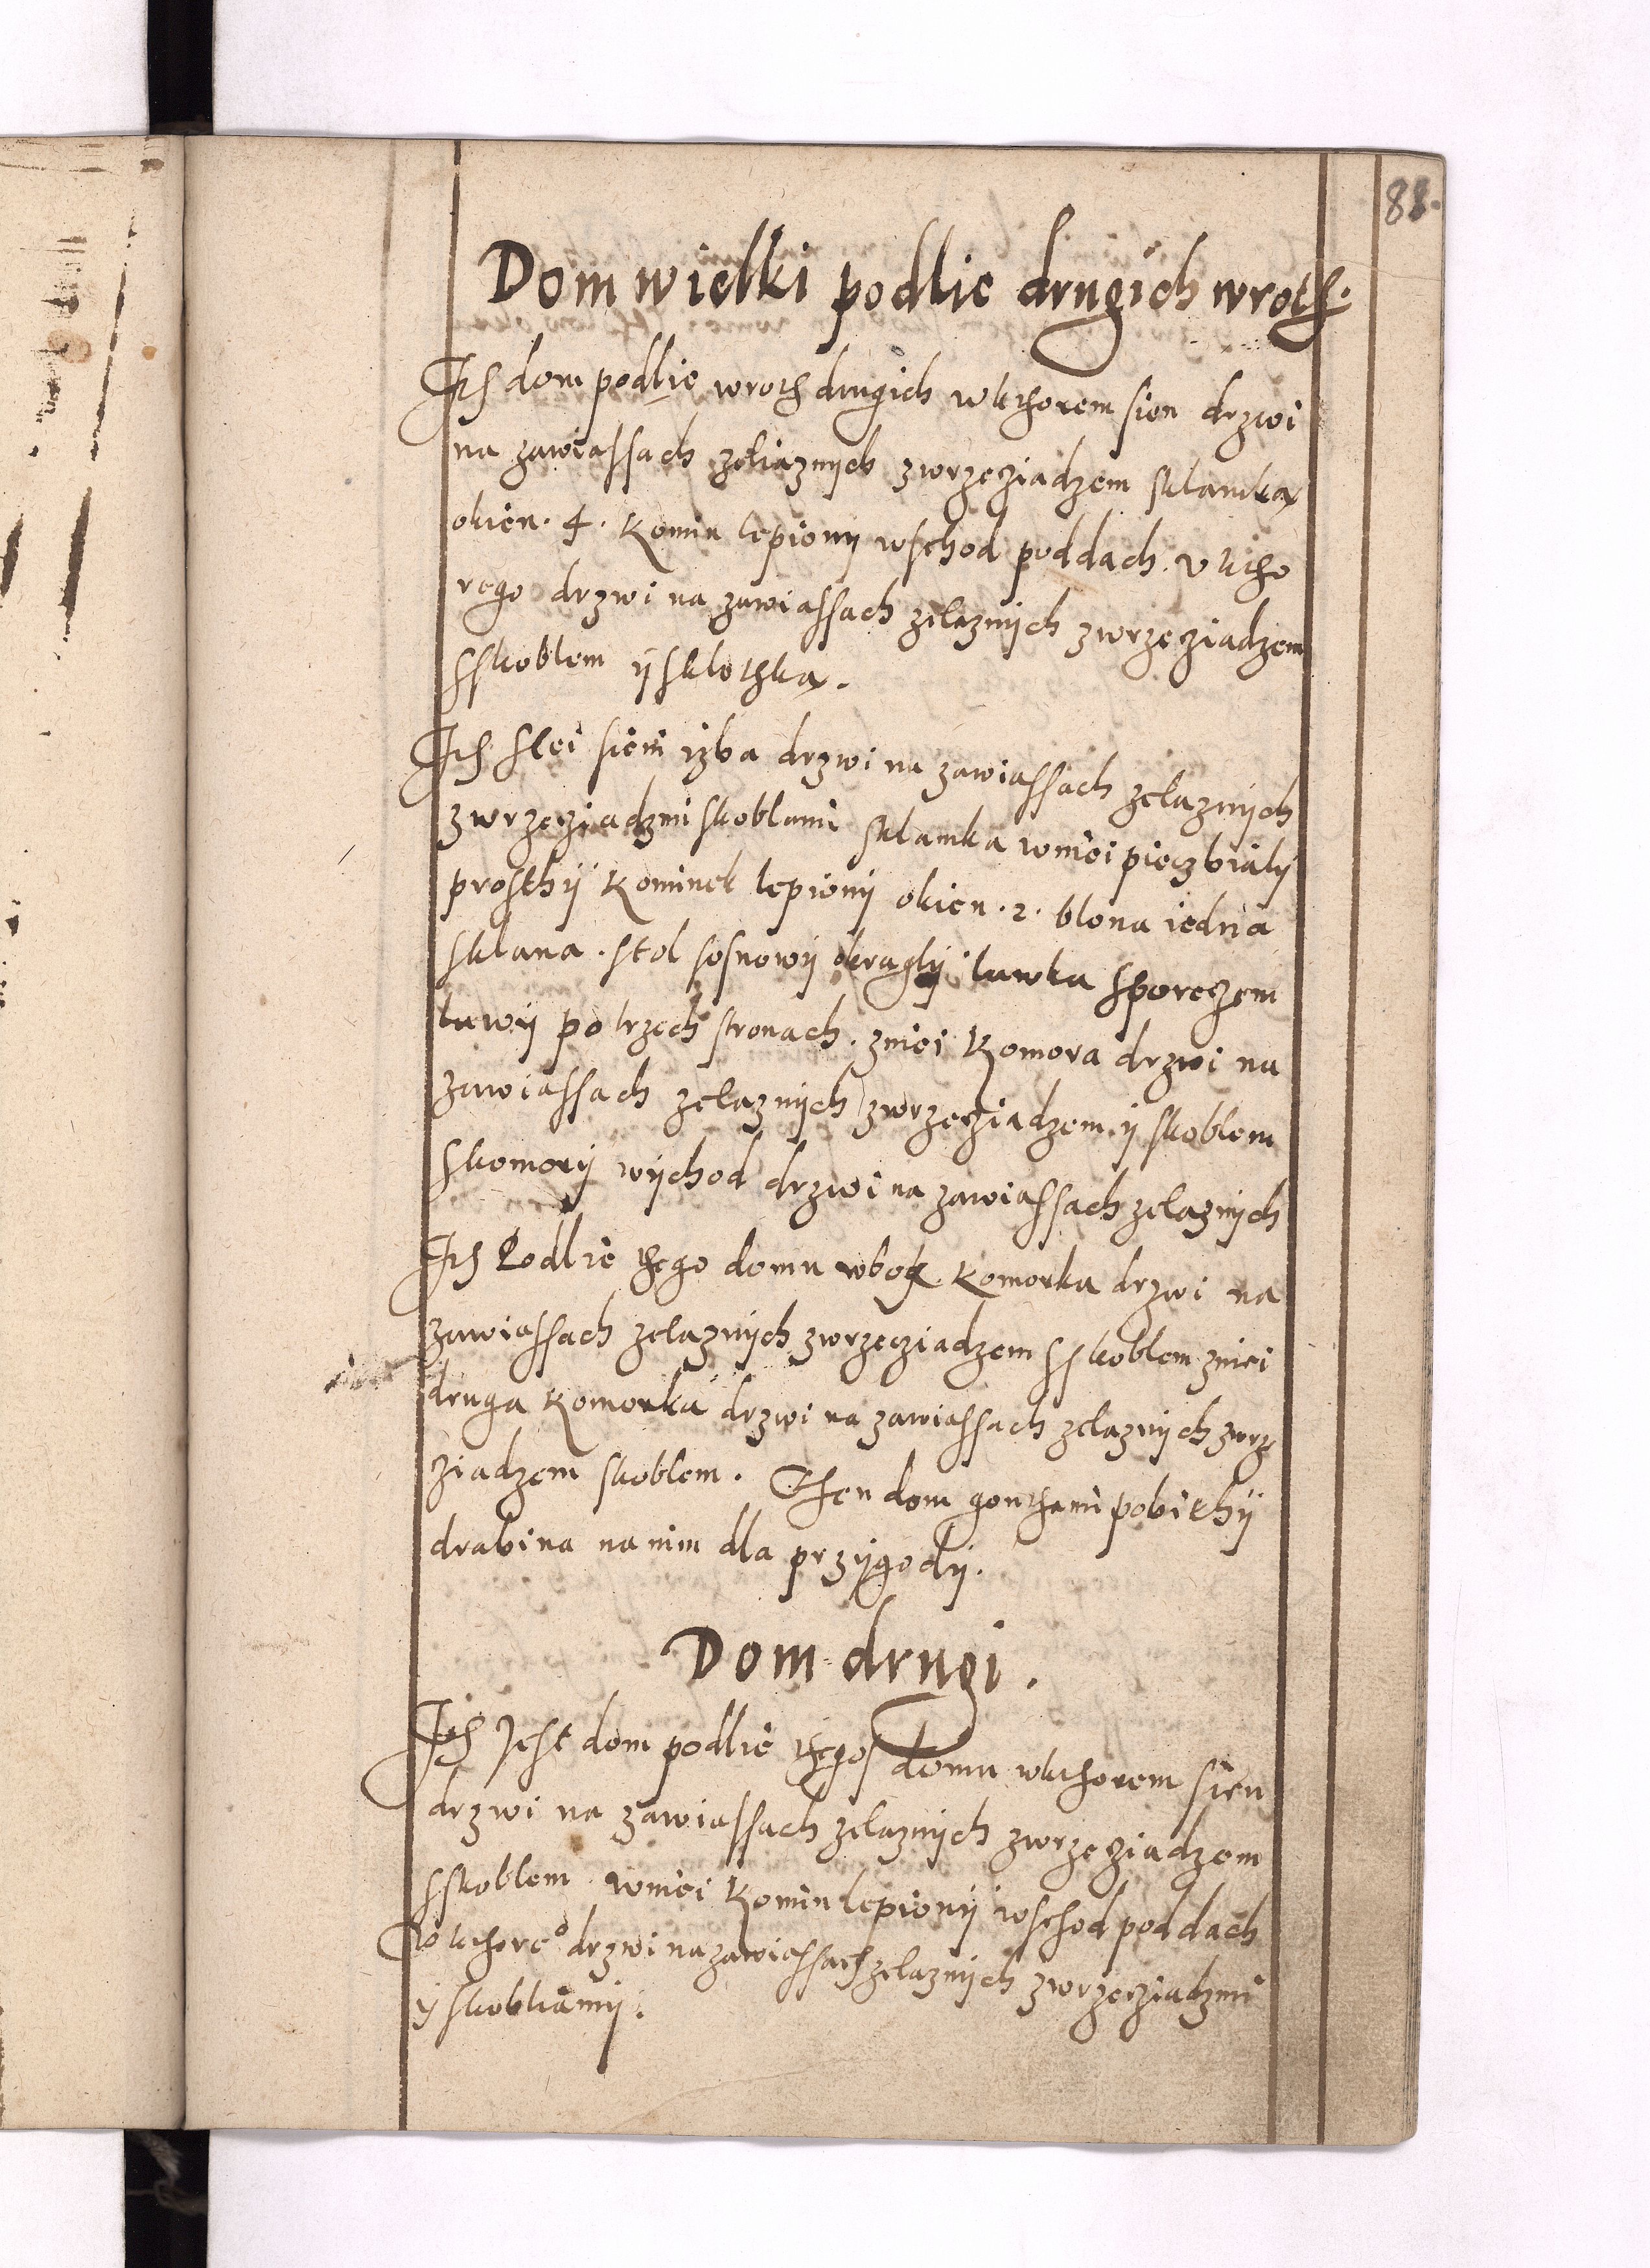 88.
Dom wielki podlie drugich wroth.
Ith dom podlie wroth drugich wkthorem sien drzwi
na zawiassach zeliaznych zwrzecziadzem sklamką
okien. 4. komin lepiony wschod poddach. v ktho
rego drzwi na zawiassach zelaznych zwrzecziadzem
sskoblem ÿ sklothką.
Ith stei sieni izba drzwi na zawiassach zelaznych
zwrzecziadzmi skoblami sklamka wniei piecz bialÿ
prosthÿ kominek lepiony okien. 2. blona iedna
sklana. stol sosnowÿ okraglÿ lawka sporeczem
lawÿ po trzech stronach. zniei komora drzwi na
zawiassach zelaznych zwrzecziadzem ÿ skoblem
skomorÿ wÿchod drzwi na zawiassach zelaznych
Ith Podlie thego domu wbok komorka drzwi na
zawiassach zelaznych zwrzecziadzem sskoblem zniei
druga komorka drzwi na zawiassach zelaznych zwrz
ziadzem skoblem. Then dom gonthami pobithÿ
drabina na nim dla przÿgodÿ.
Dom drugi.
Ith Jest dom podlie thegos domu wkthorem sien
drzwi na zawiassach zelaznych zwrzecziadzem
sskoblem wniei komin lepionÿ wschod poddach
v kthore° drzwi na zawiassach zelaznych zwrzecziadzmi
ÿ skobliamÿ.